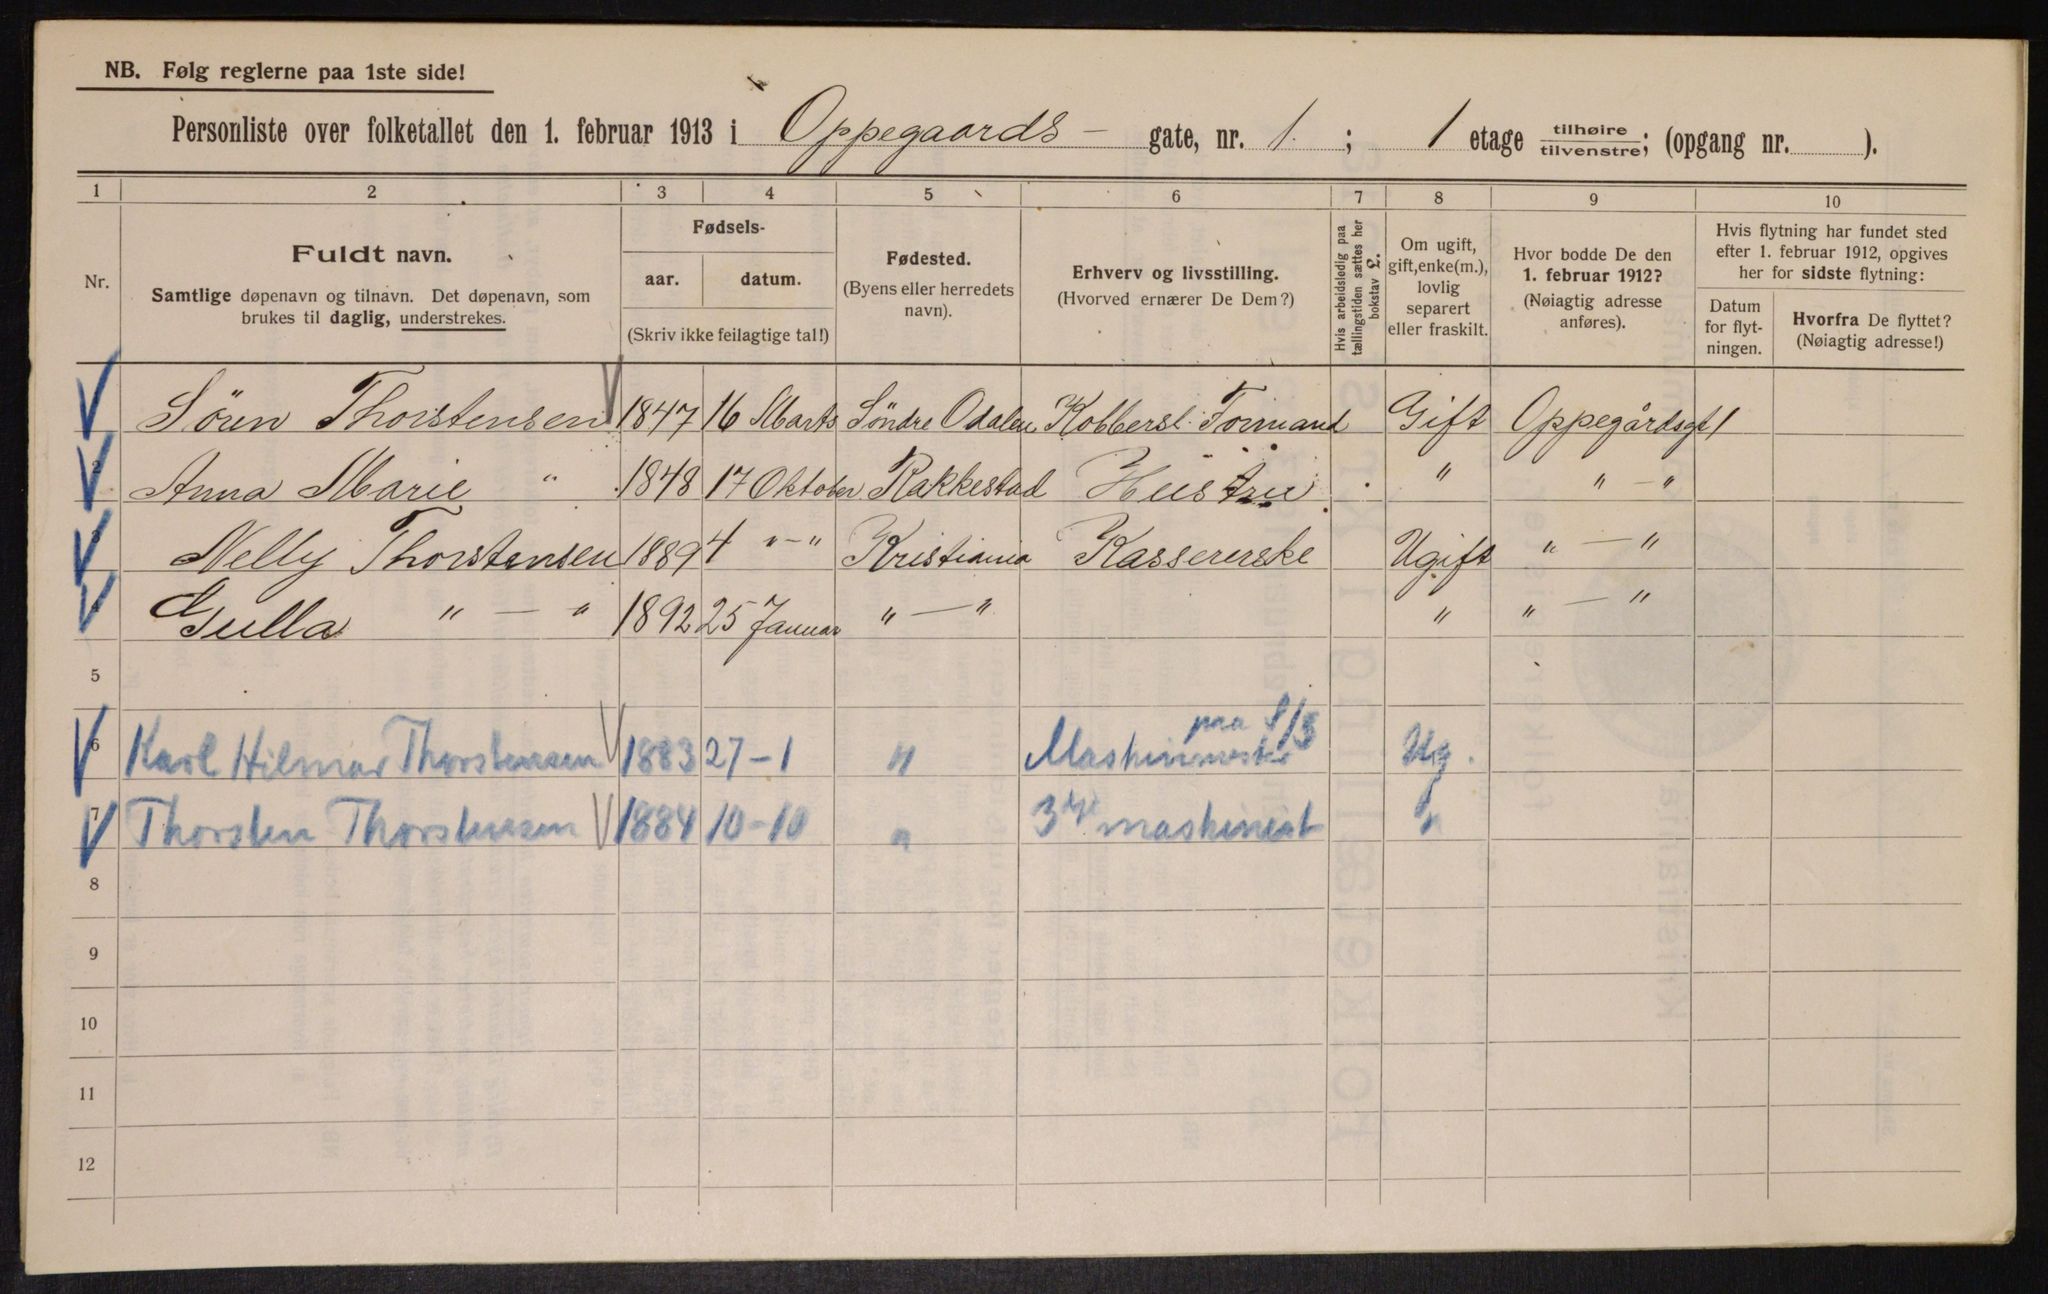 NB. Følg reglerne paa 1ste side!
Personliste over folketallet den 1. februar 1913 i Oppegaards- gate, nr. 1. ; 1 etage tilhøire/tilvenstre; (opgang nr. ).
1 2 3 4 5 6 7 8 9 10
Nr.
Fuldt navn.
Samtlige døpenavn og tilnavn. Det døpenavn, som
brukes til daglig, understrekes.
Fødsels-
aar. datum.
(Skriv ikke feilagtige tal!)
Fødested.
(Byens eller herredets
navn).
Erhverv og livsstilling.
(Hvorved ernærer De Dem?)
Hvis arbeidsledig paa
tællingstiden sættes her
bokstav L.
Om ugift,
gift, enke(m.),
lovlig
separert
eller fraskilt.
Hvor bodde De den
1. februar 1912?
(Nøiagtig adresse
anføres).
Hvis flytning har fundet sted
efter 1. februar 1912, opgives
her for sidste flytning:
Datum
for flyt-
ningen.
Hvorfra De flyttet?
(Nøiagtig adresse!)
Sören Thorstensen 1847 16 Marts Söndre Odalen Kobbersl. Formand Gift Oppegårdsgt 1
2 Anna Marie " 1848 17 Oktober Rakkestad Hüstru " " – "
3 Nelly Thorstensen 1889 4 " – " Kristiania Kassererske Ugift " – "
4 Gulla " – " 1892 25 Januar " – " " " – "
5
6 Karl Hilmar Thorstensen 1883 27-1 " Maskinmester paa S/S Ug.
7 Thorsten Thorstensen 1884 10-10 " 3dje maskinist "
8
9
10
11
12